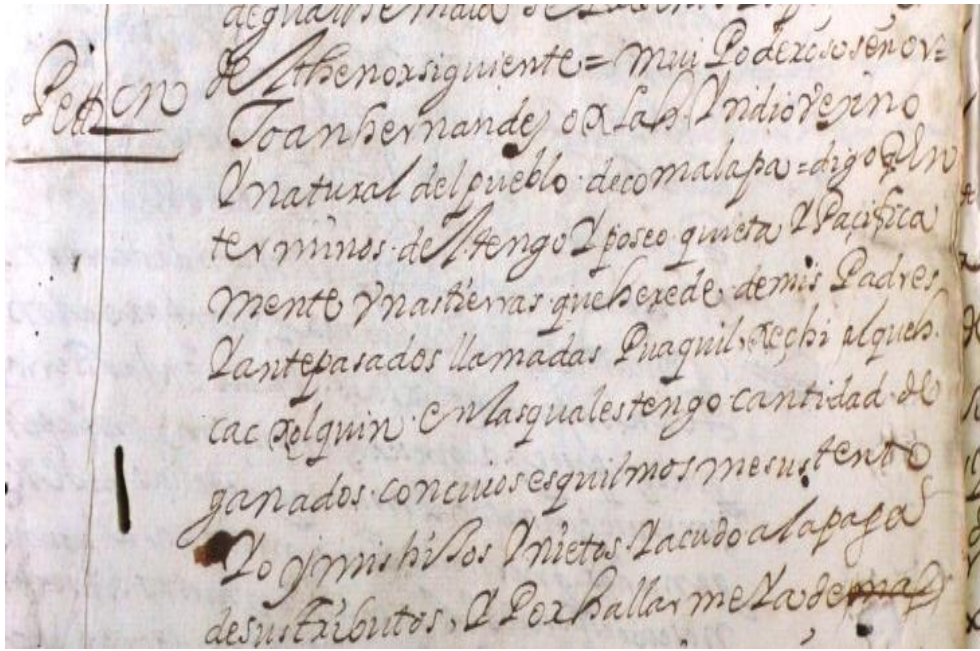 Pettⁿ
del thenor siguiente = mui Poderoso señor =
Joan hernandez oxlah Yndio vezino
Y natural del pueblo de comalapa = digo q̃ En
terminos del tengo Y poseo quieta Y Pacifica
mente Ynas tierras que herede de mis Padres
Y antepasados llamadas Puaquil, xechi
cac xelquin en las quales tengo cantidad de
ganados con cuios esquilmos me sustento
Yo y mis hijos Y nietos Y acudo a la paga
de sus tributos, Y Por hallarme Ya de